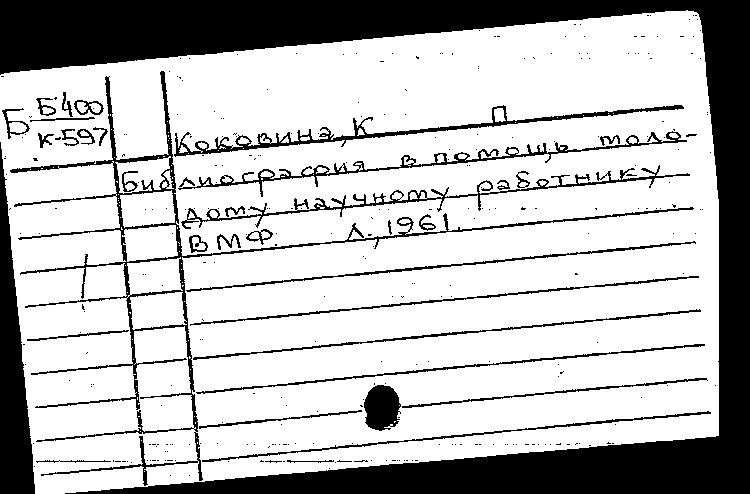 Б Б400
К-597
Коковина, К П
Библиография в помощь моло-
дому научному работнику
ВМФ. Л., 1961.